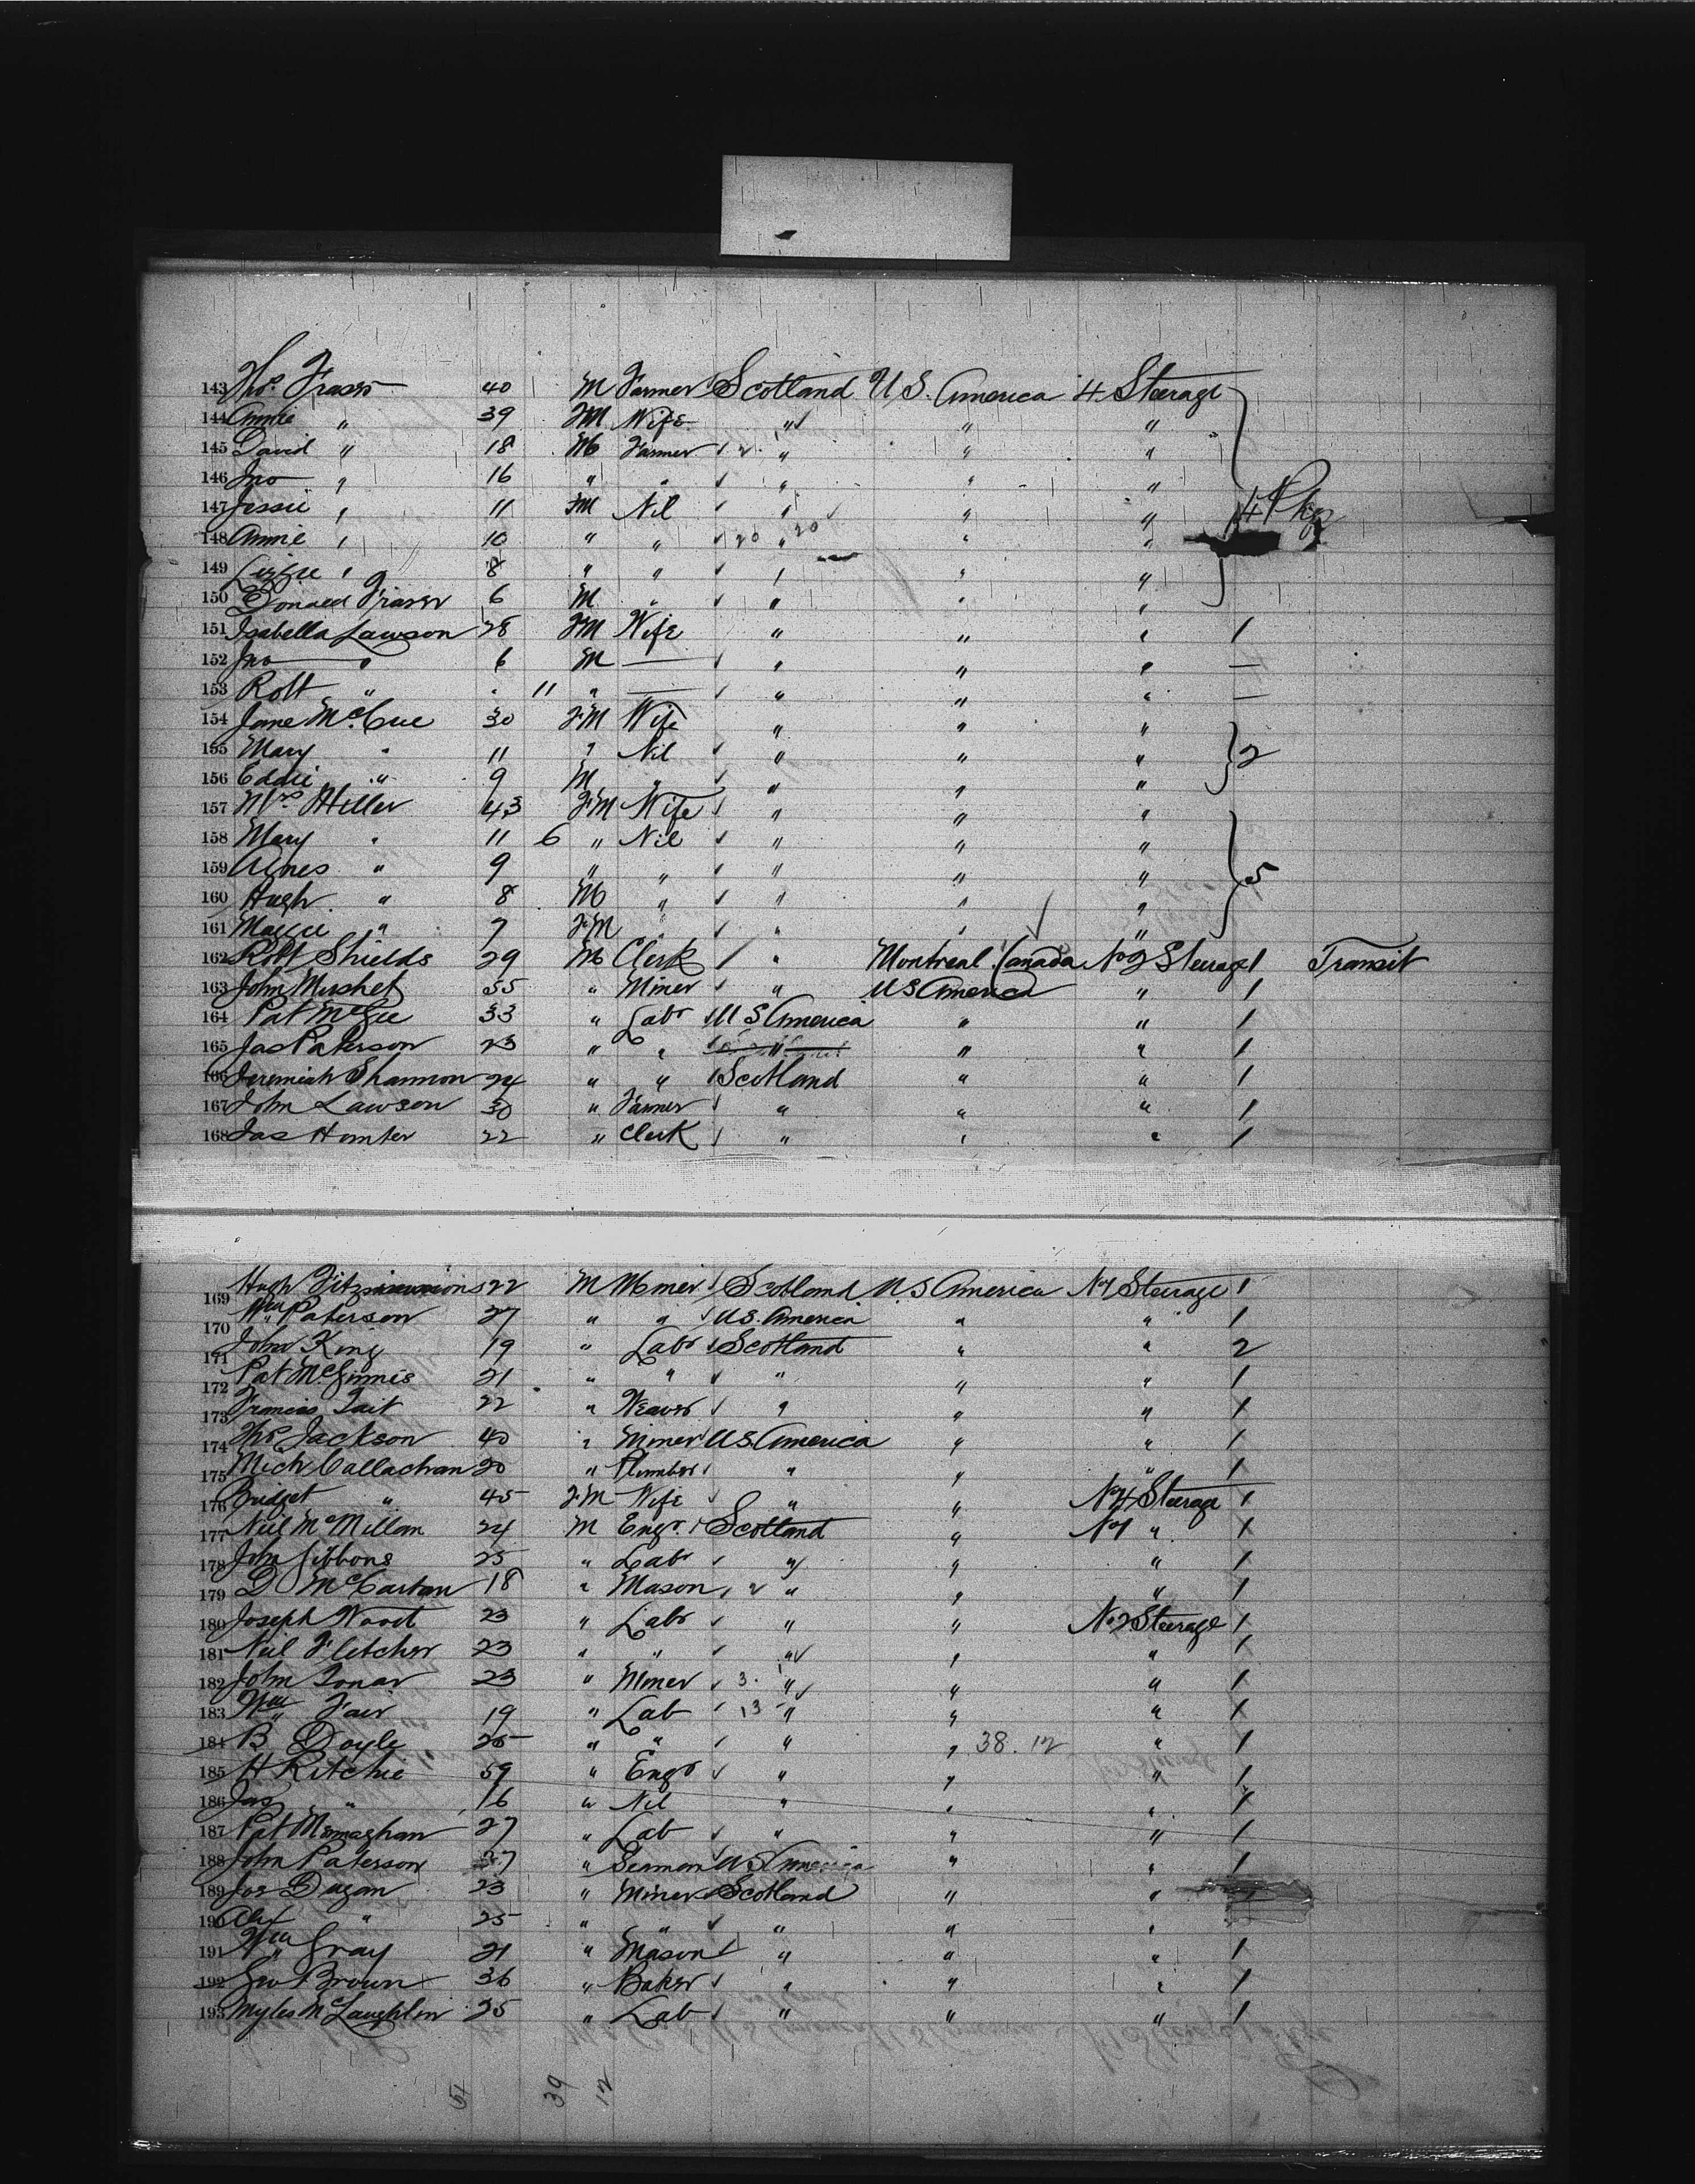 143 Thos Fraser 40 M Farmer Scotland U.S. America 4 Steerage
144 Annie " 39 FM Wife " " "
145 David " 18 M Farmer " " "
146 Jno " 16 " " " " "
147 Jessie " 11 FM Nil " " " 4 Pkgs
148 Annie " 10 " " 20 " 20 " "
149 Lizzie " 8 " " " " "
150 Donald Fraser 6 M " " " "
151 Isabella Lawson 28 FM Wife " " " 1
152 Jno " 6 M — " " " —
153 Robt " " 11 " — " " " —
154 Jane McCue 30 FM Wife " " "
155 Mary " 11 " Nil " " " 2
156 Eddie " 9 M " " " "
157 Mrs Hiller 43 FM Wife " " "
158 Mary " 11 6 " Nil " " "
159 Agnes " 9 " " " " " 5
160 Hugh " 8 M " " " "
161 Maggie " 7 FM " " " "
162 Robt Shields 29 M Clerk " Montreal Canada No 2 Steerage 1 Transit
163 John Mushet 55 " Miner " U S America " 1
164 Pat McGee 33 " Labr U S America " " 1
165 Jas Paterson 23 " " " " " 1
166 Jeremiah Shannon 24 " " Scotland " " 1
167 John Lawson 30 " Farmer " " " 1
168 Jas Hunter 22 " Clerk " " " 1
169 Hugh Fitzsimmions 22 M Miner Scotland U.S America No 1 Steerage 1
170 Wm Paterson 27 " " U.S. America " " 1
171 John King 19 " Labr Scotland " " 2
172 Pat McGinnis 21 " " " " " 1
173 Francis Tait 22 " Weaver " " " 1
174 Thos Jackson 40 " Miner U.S. America " " 1
175 Mich Callachan 20 " Plumber " " " 1
176 Bridget " 45 FM Wife " " No 4 Steerage 1
177 Neil McMillan 24 M Engr. Scotland " No 1 " 1
178 John Gibbons 25 " Labr " " " 1
179 D McCartan 18 " Mason " " " 1
180 Joseph Wood 23 " Labr " " No 2 Steerage 1
181 Neil Fletcher 23 " " " " " 1
182 John Tonar 23 " Miner 3. " " " 1
183 Wm Fair 19 " Lab 13 " " " 1
184 B Doyle 25 " " " " 38. 12 " 1
185 H Ritchie 59 " Engr " " " 1
186 Jas " 16 " Nil " " " 1
187 Pat Monaghan 27 " Lab " " " 1
188 John Paterson 27 " Seaman U S America " " 1
189 Jos Dugan 23 " Miner Scotland " "
190 Alex " 25 " " " " "
191 Wm Gray 21 " Mason " " " 1
192 Geo Brown 36 " Baker " " " 1
193 Myles McLaughlin 25 " Lab " " " 1
51 39 12